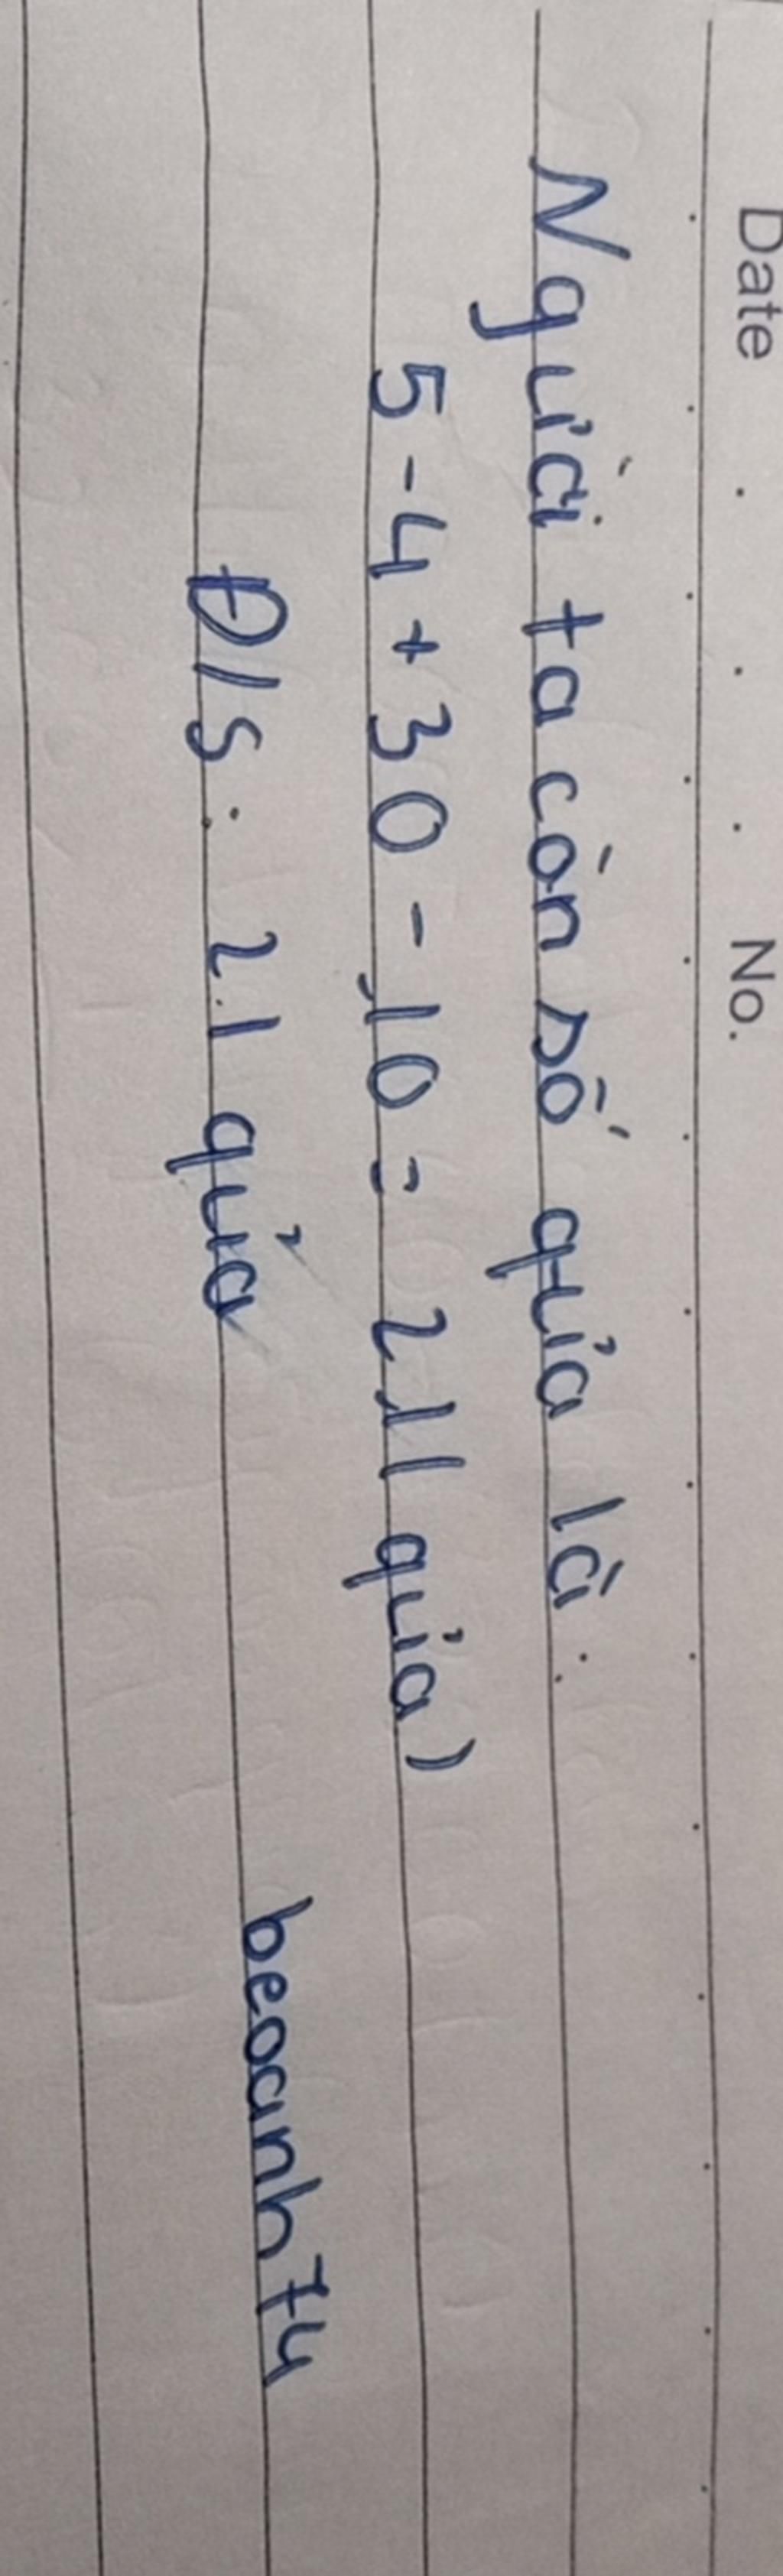 Date No.
Người ta còn số quả là:
5-4+30-10= 21(quả)
Đ/S: 21 quả
beoanh74